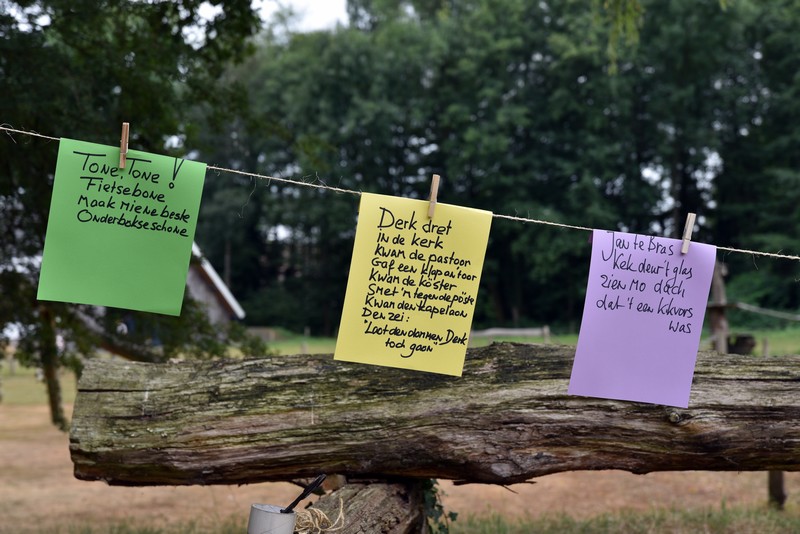 Tone, Tone!
Fietsebone
Maak mie ne beste
Onderbokse schone
Derk dret
in de kerk
Kwam de pastoor
Gaf een klap an 't oor
Kwam de köster
Smet 'm tegen de pöste
Kwam den kapelaan
Den zei:
"Loat den dommen Derk
toch goan"
Jan te Bras
Kek deur 't glas
Zien mo dach
dat 't een kikvors
was